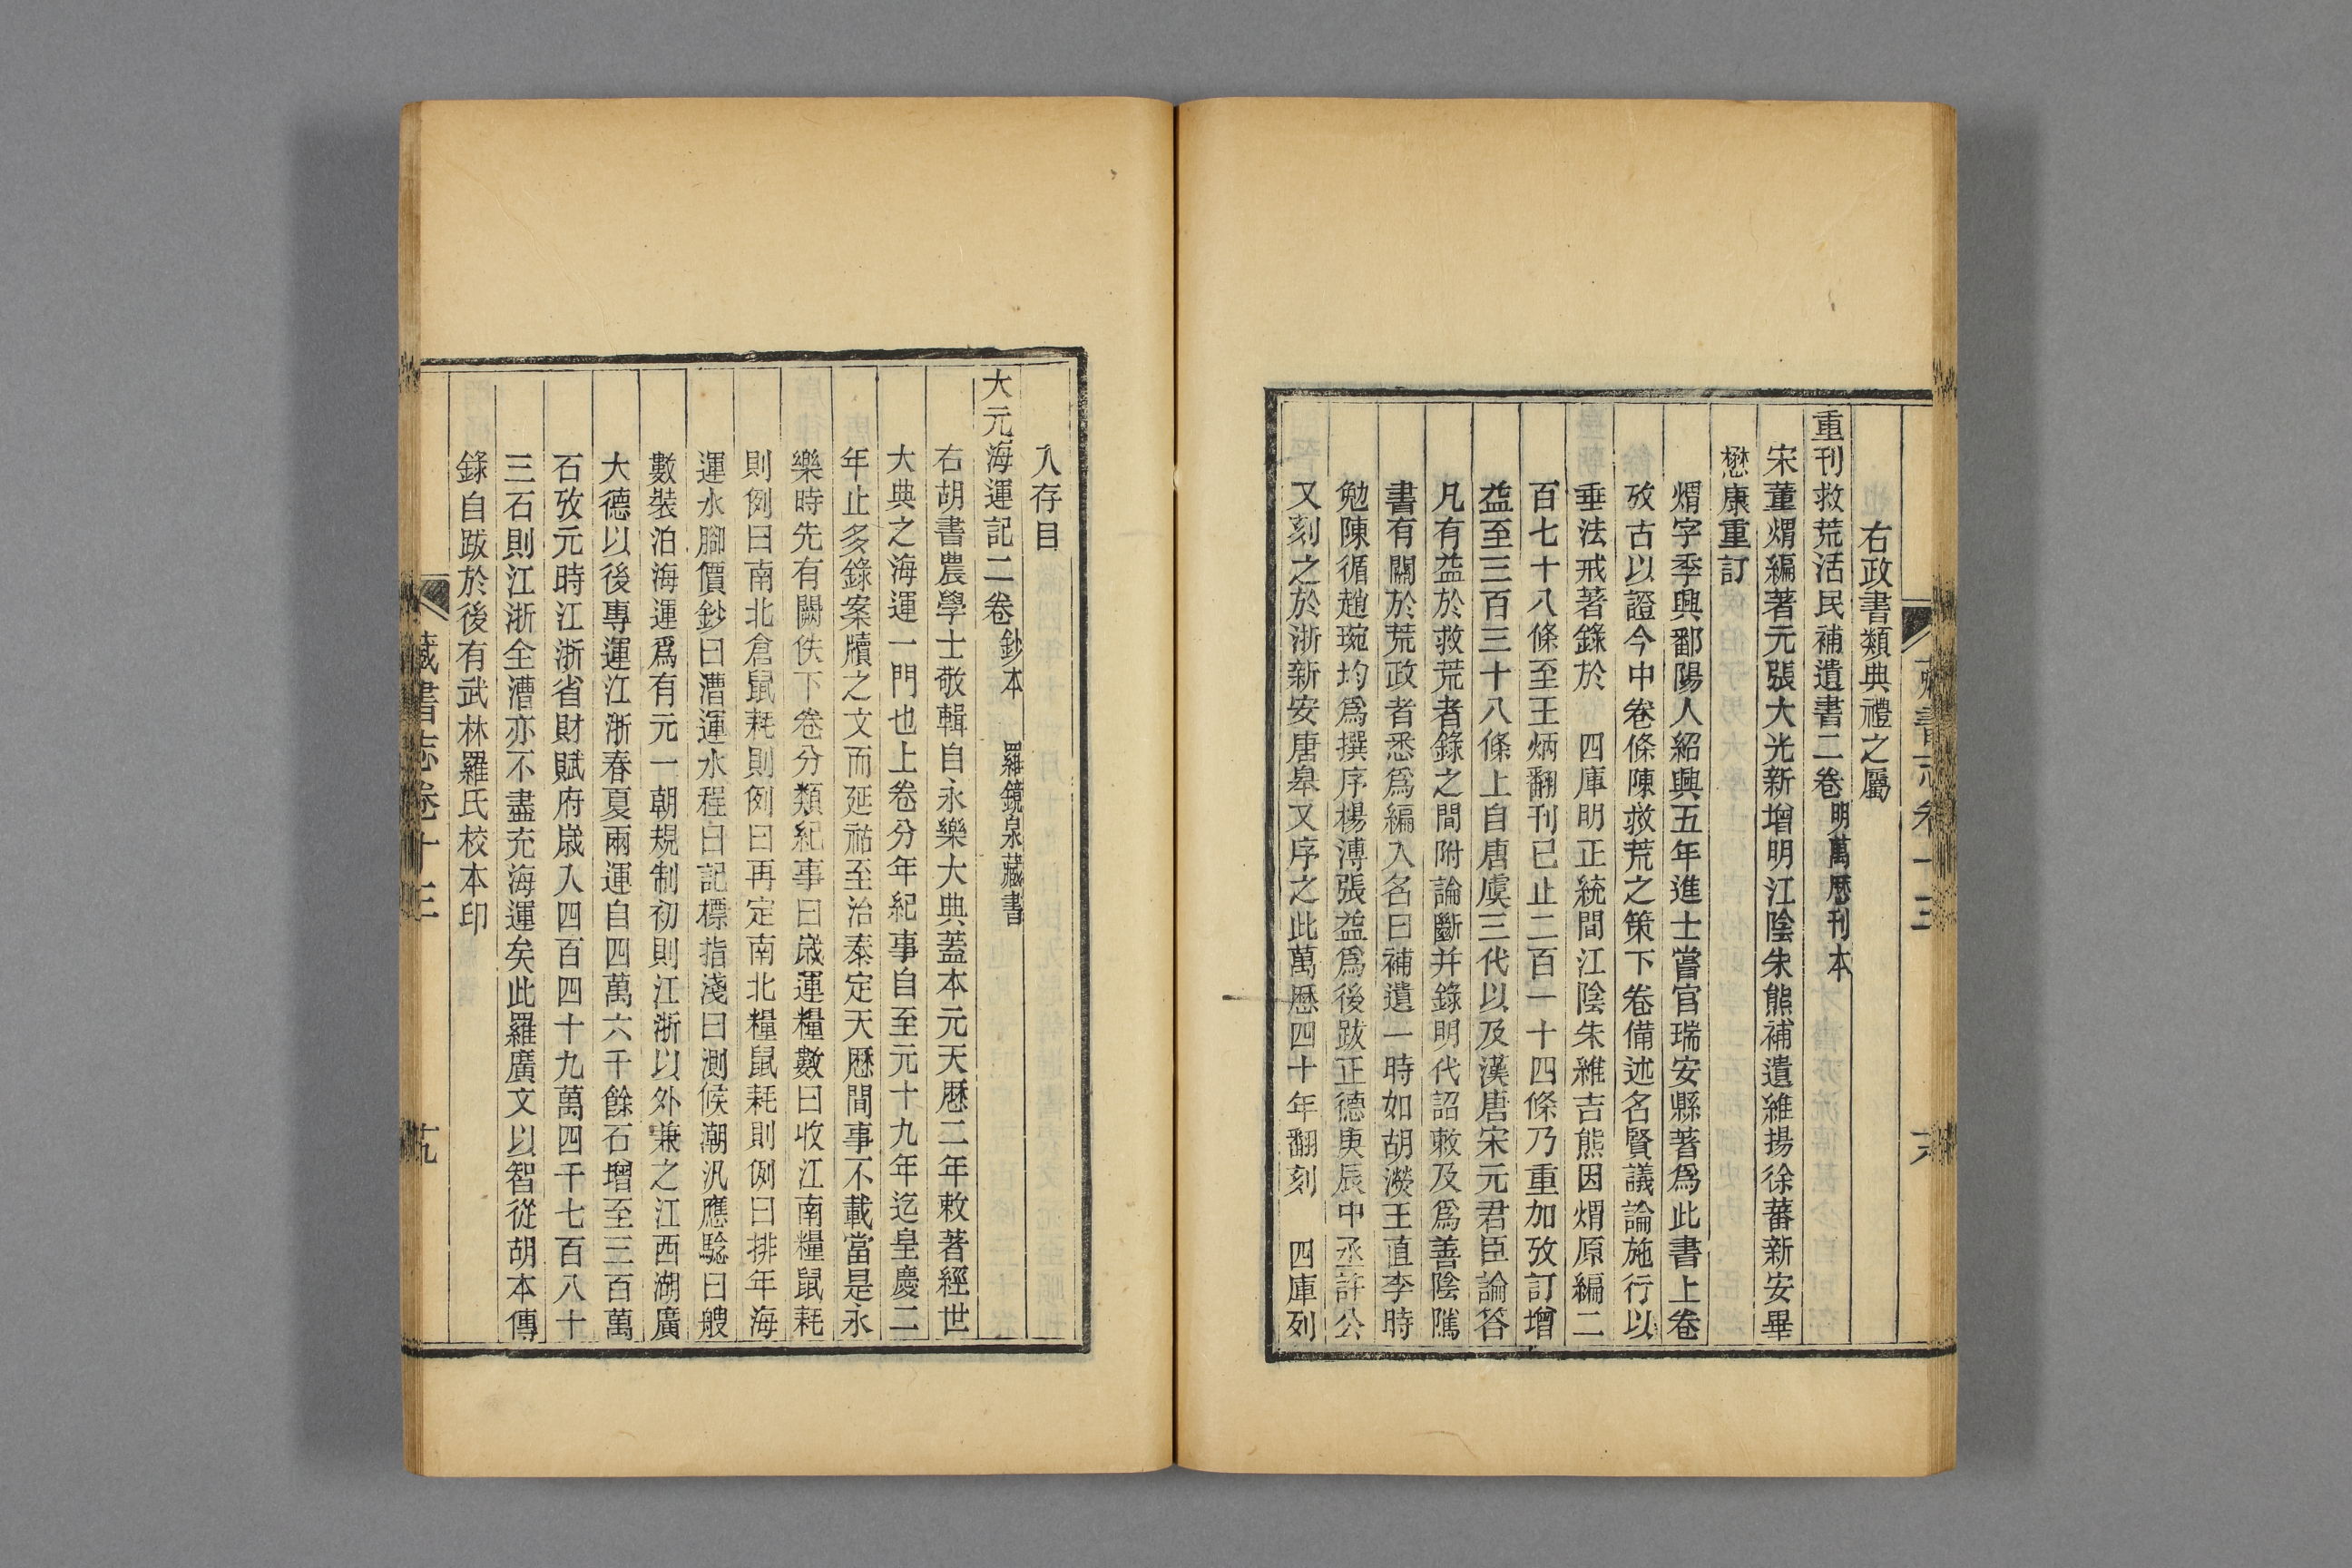 右政書類典禮之屬
重刊救荒活民補遺書二卷明萬曆刊本
宋董煟編著元張大光新增明江陰朱熊補遺維揚徐蕃新安畢
懋康重訂
煟字季興鄱陽人紹興五年進士嘗官瑞安縣著爲此書上卷
攷古以證今中卷條陳救荒之策下卷備述名賢議論施行以
垂法戒著錄於　四庫明正統間江陰朱維吉熊因煟原編二
百七十八條至王炳翻刊已止二百一十四條乃重加攷訂增
益至三百三十八條上自唐虞三代以及漢唐宋元君臣論答
凡有益於救荒者錄之間附論斷并錄明代詔敕及爲善陰隲
書有關於荒政者悉爲編入名曰補遺一時如胡濙王直李時
勉陳循趙琬均爲撰序楊溥張益爲後跋正德庚辰中丞許公
又刻之於浙新安唐皋又序之此萬曆四十年翻刻　四庫列
入存目
大元海運記二卷鈔本　羅鏡泉藏書
右胡書農學士敬輯自永樂大典蓋本元天曆二年敕著經世
大典之海運一門也上卷分年紀事自至元十九年迄皇慶二
年止多錄案牘之文而延祐至治泰定天曆間事不載當是永
樂時先有闕佚下卷分類紀事曰歲運糧數曰收江南糧鼠耗
則例曰南北倉鼠耗則例曰再定南北糧鼠耗則例曰排年海
運水腳價鈔曰漕運水程曰記標指淺曰測候潮汛應驗曰艘
數裝泊海運爲有元一朝規制初則江浙以外兼之江西湖廣
大德以後專運江浙春夏兩運自四萬六千餘石增至三百萬
石攷元時江浙省財賦府歲入四百四十九萬四千七百八十
三石則江浙全漕亦不盡充海運矣此羅廣文以智從胡本傳
錄自跋於後有武林羅氏校本印
藏書志卷十三